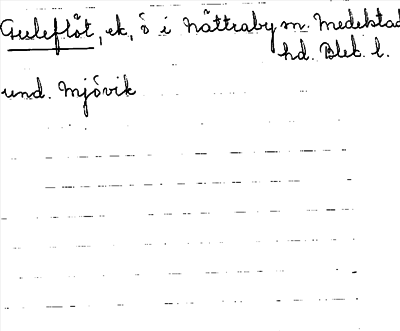 Guleflöt, ek, ö i Nättraby sn. Medelstad
hd. Blek. l.
und. Mjövik